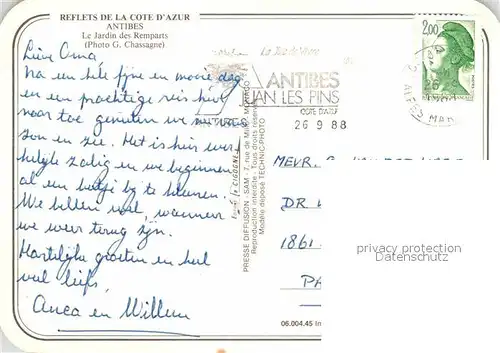 REFLETS DE LA COTE D'AZUR
ANTIBES
Le Jardin des Remparts
(Photo G. Chassagne)
Lieve Oma,
Na een hele fijne en mooie dag
en een prachtige reis hier
naar toe genieten we nu van
zon en zee. Het is hier wer-
kelijk zalig en we beginnen
al een beetje bij te kleuren.
We bellen wel, wanneer
we weer terug zijn.
Hartelijke groeten en heel
veel liefs,
Anca en Willem
ANTIBES
JUAN LES PINS
COTE D'AZUR
26 9 88
2,00
PRESSE DIFFUSION - SAM - 7, rue de
Reproduction interdite - Tous droits réservés
Modèle déposé TECHNIC-PHOTO
MEVR.
DR
1861
PA
privacy protection
Datenschutz
06.004.45